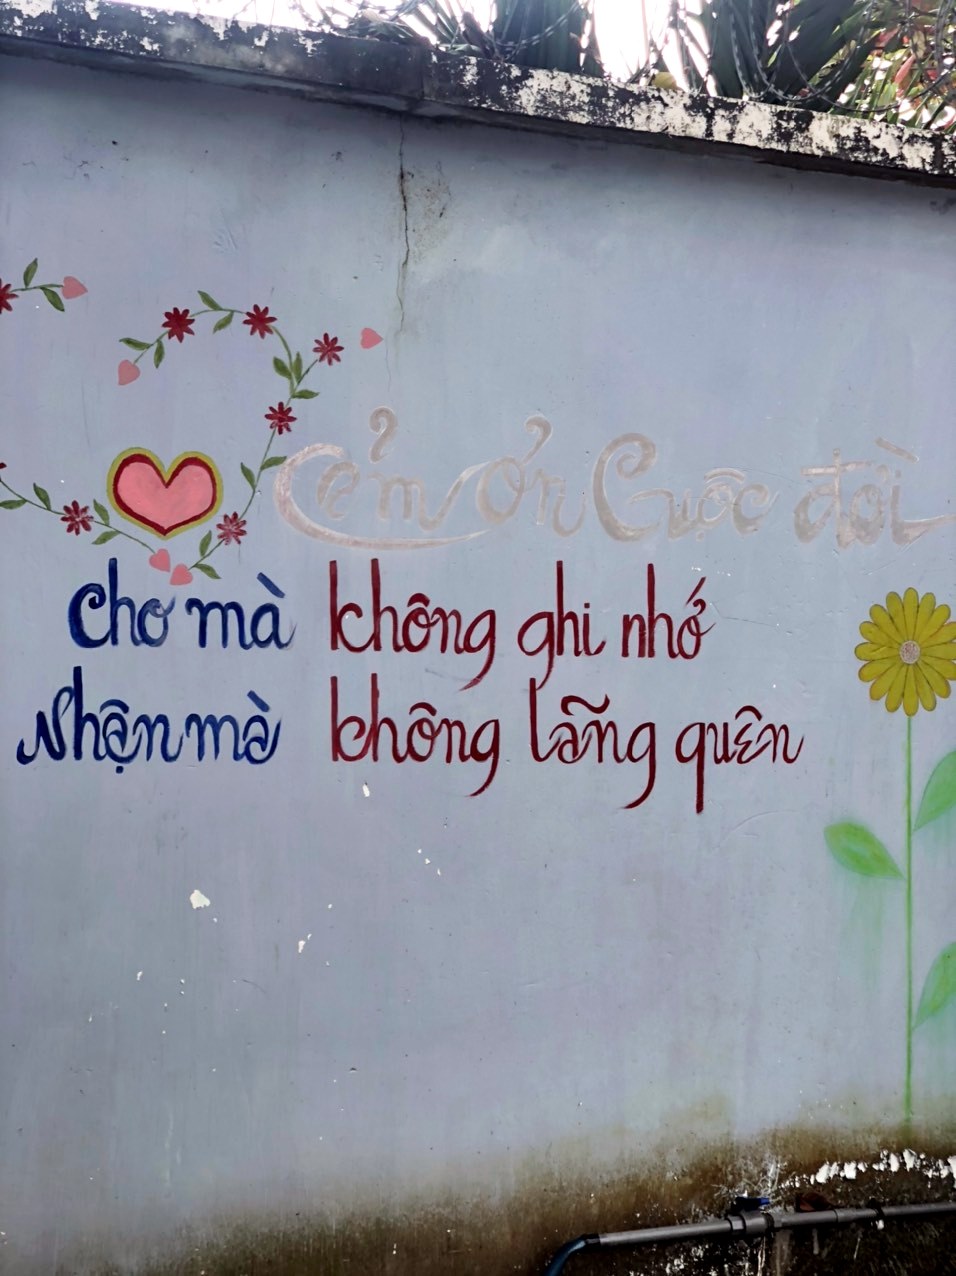 Cảm ơn Cuộc đời
Cho mà không ghi nhớ
Nhận mà không lãng quên